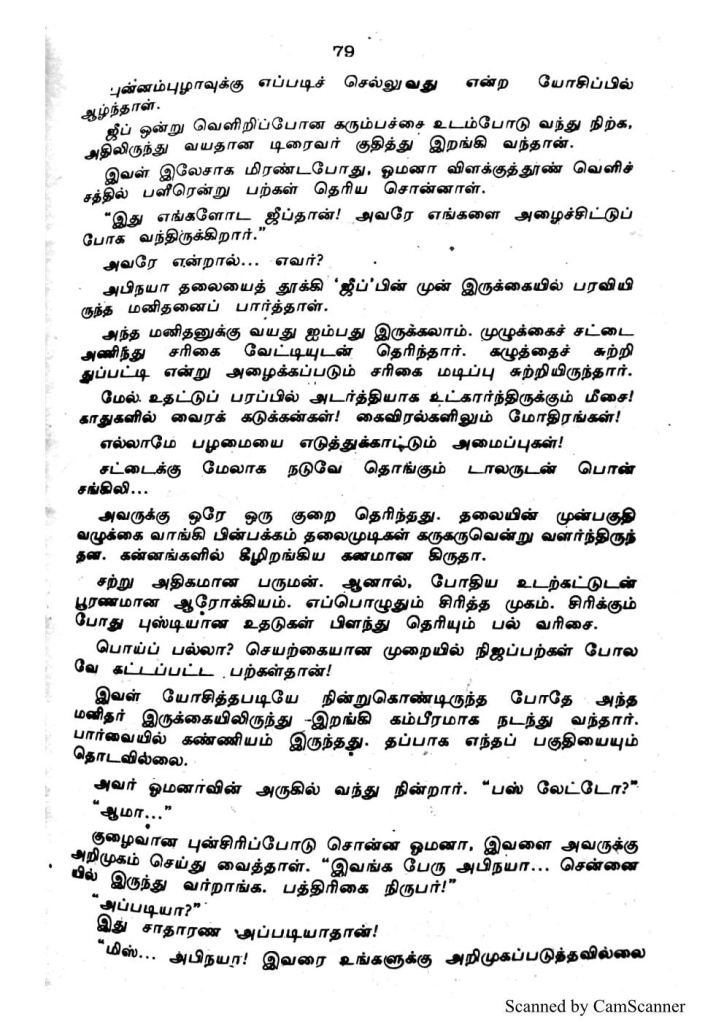 79
புன்னம்புழாவுக்கு எப்படிச் செல்லுவது என்ற யோசிப்பில்
ஆழ்ந்தாள்.
ஜீப் ஒன்று வெளிறிப்போன கரும்பச்சை உடம்போடு வந்து நிற்க,
அதிலிருந்து வயதான டிரைவர் குதித்து இறங்கி வந்தான்.
இவள் இலேசாக மிரண்டபோது, ஓமனா விளக்குத்தூண் வெளிச்
சத்தில் பளீரென்று பற்கள் தெரிய சொன்னாள்.
"இது எங்களோட ஜீப்தான்! அவரே எங்களை அழைச்சிட்டுப்
போக வந்திருக்கிறார்."
அவரே என்றால்... எவர்?
அபிநயா தலையைத் தூக்கி 'ஜீப்'பின் முன் இருக்கையில் பரவியி
ருந்த மனிதனைப் பார்த்தாள்.
அந்த மனிதனுக்கு வயது ஐம்பது இருக்கலாம். முழுக்கைச் சட்டை
அணிந்து சரிகை வேட்டியுடன் தெரிந்தார். கழுத்தைச் சுற்றி
துப்பட்டி என்று அழைக்கப்படும் சரிகை மடிப்பு சுற்றியிருந்தார்.
மேல் உதட்டுப் பரப்பில் அடர்த்தியாக உட்கார்ந்திருக்கும் மீசை!
காதுகளில் வைரக் கடுக்கன்கள்! கைவிரல்களிலும் மோதிரங்கள்!
எல்லாமே பழமையை எடுத்துக்காட்டும் அமைப்புகள்!
சட்டைக்கு மேலாக நடுவே தொங்கும் டாலருடன் பொன்
சங்கிலி...
அவருக்கு ஒரே ஒரு குறை தெரிந்தது. தலையின் முன்பகுதி
வழுக்கை வாங்கி பின்பக்கம் தலைமுடிகள் கருகருவென்று வளர்ந்திருந்
தன. கன்னங்களில் கீழிறங்கிய கனமான கிருதா.
சற்று அதிகமான பருமன். ஆனால், போதிய உடற்கட்டுடன்
பூரணமான ஆரோக்கியம். எப்பொழுதும் சிரித்த முகம். சிரிக்கும்
போது புஸ்டியான உதடுகள் பிளந்து தெரியும் பல் வரிசை.
பொய்ப் பல்லா? செயற்கையான முறையில் நிஜப்பற்கள் போல
வே கட்டப்பட்ட பற்கள்தான்!
இவள் யோசித்தபடியே நின்றுகொண்டிருந்த போதே அந்த
மனிதர் இருக்கையிலிருந்து இறங்கி கம்பீரமாக நடந்து வந்தார்.
பார்வையில் கண்ணியம் இருந்தது. தப்பாக எந்தப் பகுதியையும்
தொடவில்லை.
அவர் ஓமனாவின் அருகில் வந்து நின்றார். "பஸ் லேட்டோ?"
"ஆமா..."
குழைவான புன்சிரிப்போடு சொன்ன ஓமனா, இவளை அவருக்கு
அறிமுகம் செய்து வைத்தாள். "இவங்க பேரு அபிநயா... சென்னை
யில் இருந்து வர்றாங்க. பத்திரிகை நிருபர்!"
"அப்படியா?"
இது சாதாரண அப்படியாதான்!
"மிஸ்... அபிநயா! இவரை உங்களுக்கு அறிமுகப்படுத்தவில்லை
Scanned by CamScanner